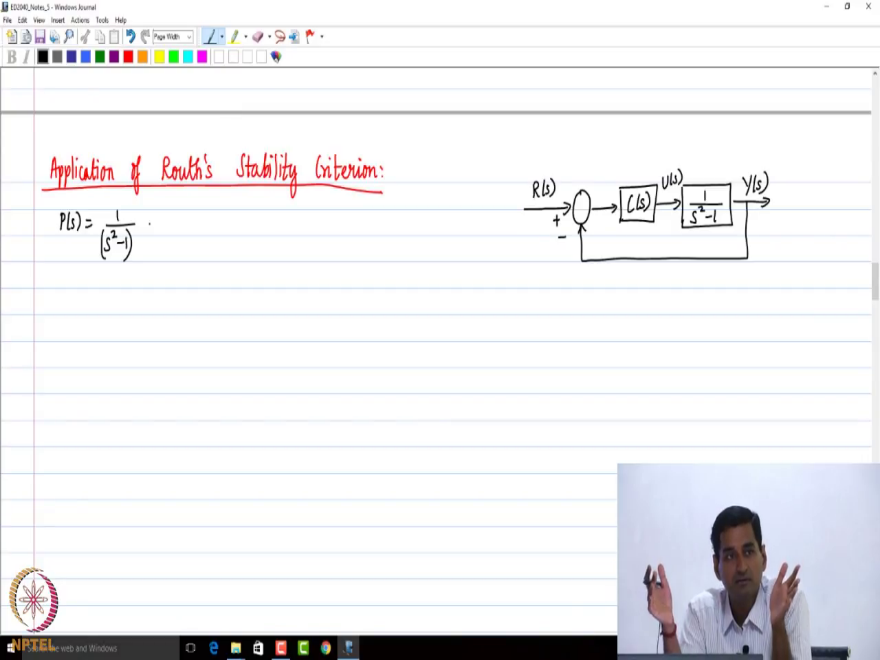 ED2040_Notes_5 - Windows Journal
File Edit View Insert Actions Tools Help
Page Width
B I
Application of Routh's Stability Criterion:
P(s) = 1/(s²-1)
R(s) + - C(s) U(s) 1/(s²-1) Y(s)
NPTEL
the web and Windows